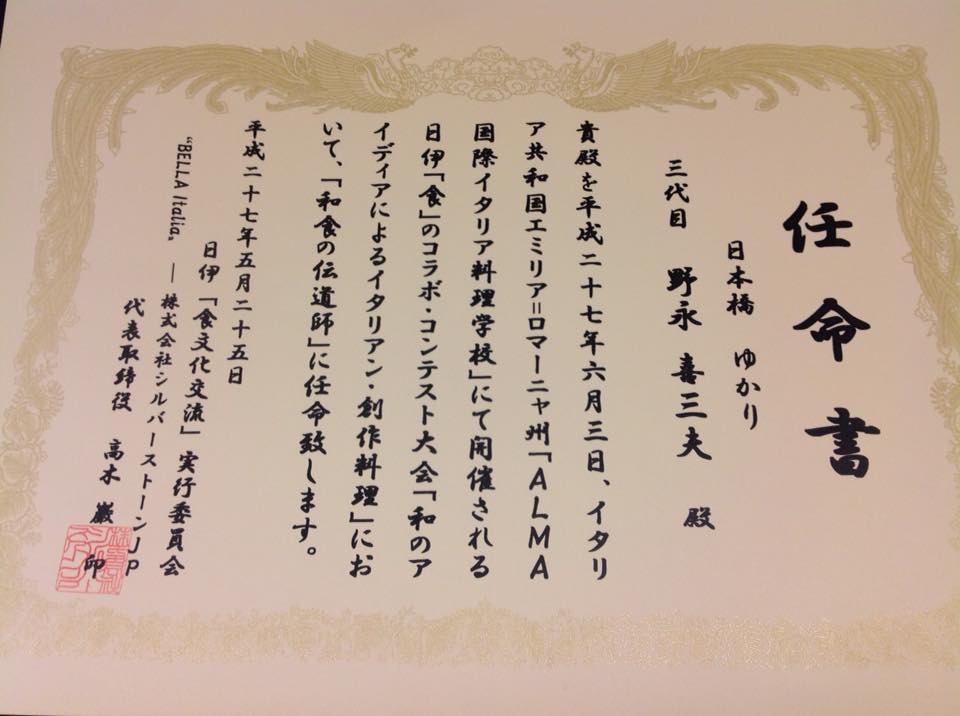 任命書
日本橋 ゆかり
三代目 野永 喜三夫 殿
貴殿を平成二十七年六月三日、イタリ
ア共和国エミリア＝ロマーニャ州「ALMA
国際イタリア料理学校」にて開催される
日伊「食」のコラボ・コンテスト大会「和のア
イディアによるイタリアン・創作料理」にお
いて、「和食の伝道師」に任命致します。
平成二十七年五月二十五日
日伊「食文化交流」実行委員会
“BELLA Italia„ ― 株式会社シルバーストーンJP
代表取締役 高木 巌 印